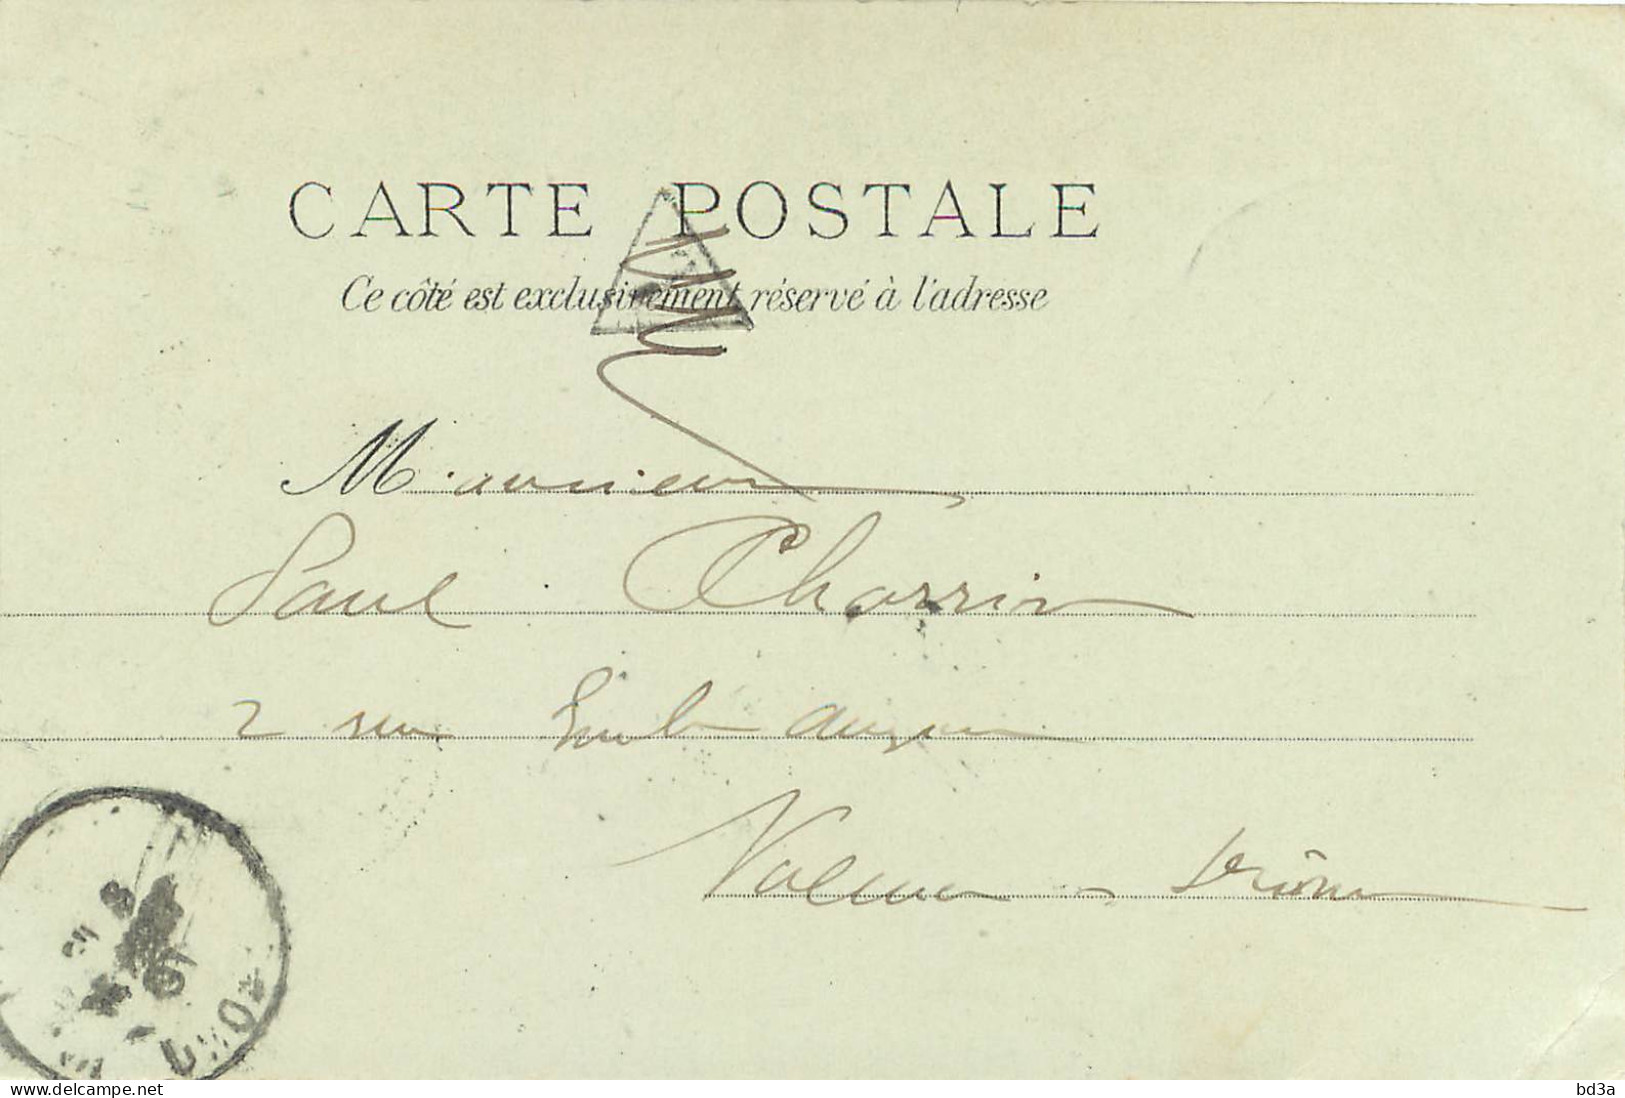 CARTE POSTALE
Ce côté est exclusivement réservé à l'adresse
Monsieur
Paul Charrin
2 rue Emile Augier
Valence - Drôme
DRÔME
website: www.delcampe.net
bd3a